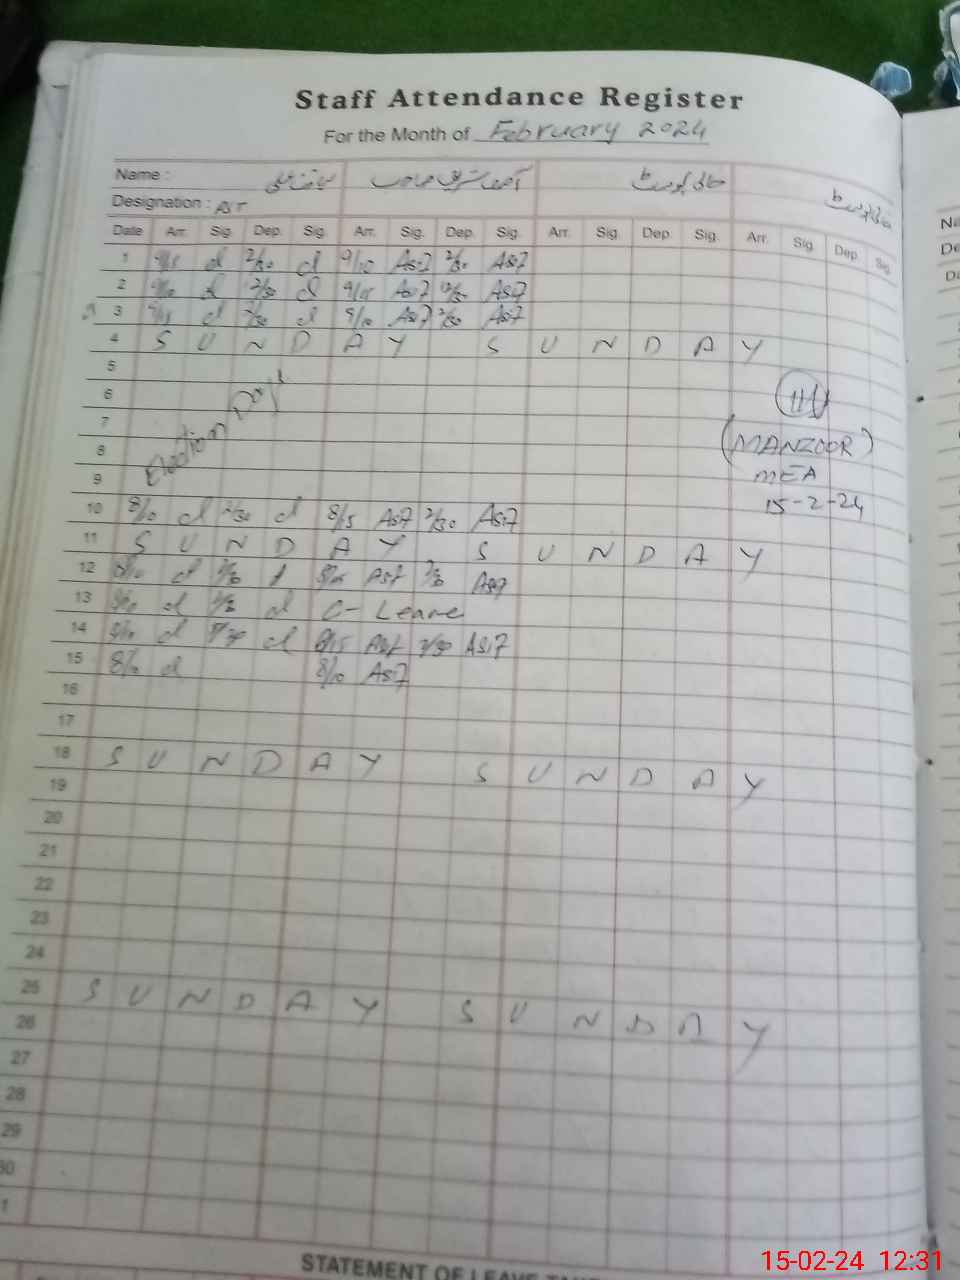 Staff Attendance Register
For the Month of February 2024
Name : آصف شریف صاحب خالی پوسٹ خالی پوسٹ
Designation : PST
Date Arr. Sig. Dep. Sig. Arr. Sig. Dep. Sig. Arr. Sig. Dep. Sig. Arr. Sig. Dep. Sig.
1 9/15 d 2/30 d 9/10 Asif 2/30 Asif
2 9/10 d 12/30 d 9/15 Asif 12/30 Asif
3 9/15 d 2/30 d 9/10 Asif 2/30 Asif
4 S U N D A Y S U N D A Y
5
6
7 Election Day
8 (MANZOOR)
9 MEA
15-2-24
10 8/10 d 2/30 d 8/15 Asif 2/30 Asif
11 S U N D A Y S U N D A Y
12 8/10 d 2/30 d Asif 2/30 Asif
13 8/10 d 2/30 d C- Leave
14 8/10 d 2/30 d 8/15 Asif 2/30 Asif
15 8/10 d 8/10 Asif
16
17
18 S U N D A Y S U N D A Y
19
20
21
22
23
24
25 S U N D A Y S U N D A Y
26
27
28
29
30
1
STATEMENT OF LEAVE
15-02-24 12:31